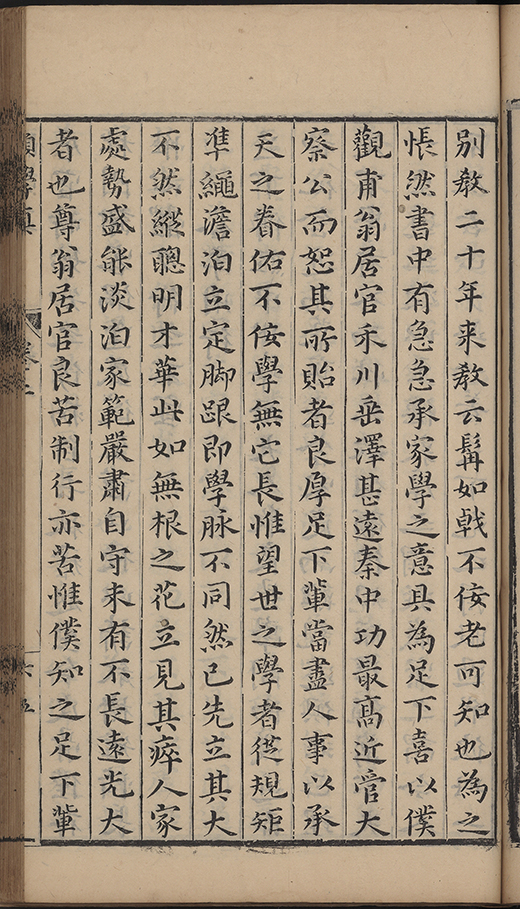 別教二十年来教云髯如戟不佞老可知也為之
悵然書中有急急承家學之意具為足下喜以僕
觀甫翁居官禾川垂澤甚遠秦中功最髙近管大
察公而恕其所貽者良厚足下輩當盡人事以承
天之眷佑不佞學無它長惟望世之學者從規矩
準繩澹泊立定脚跟即學脉不同然已先立其大
不然縱聰明才華此如無根之花立見其瘁人家
處勢盛能淡泊家範嚴肅自守未有不長遠光大
者也尊翁居官良苦制行亦苦惟僕知之足下輩